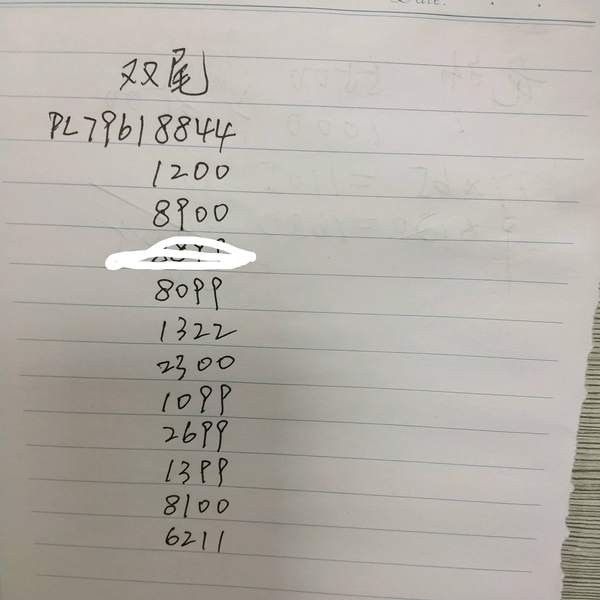 Date:
双尾
PL79618844
1200
8900
8099
1322
2300
1099
2699
1399
8100
6211